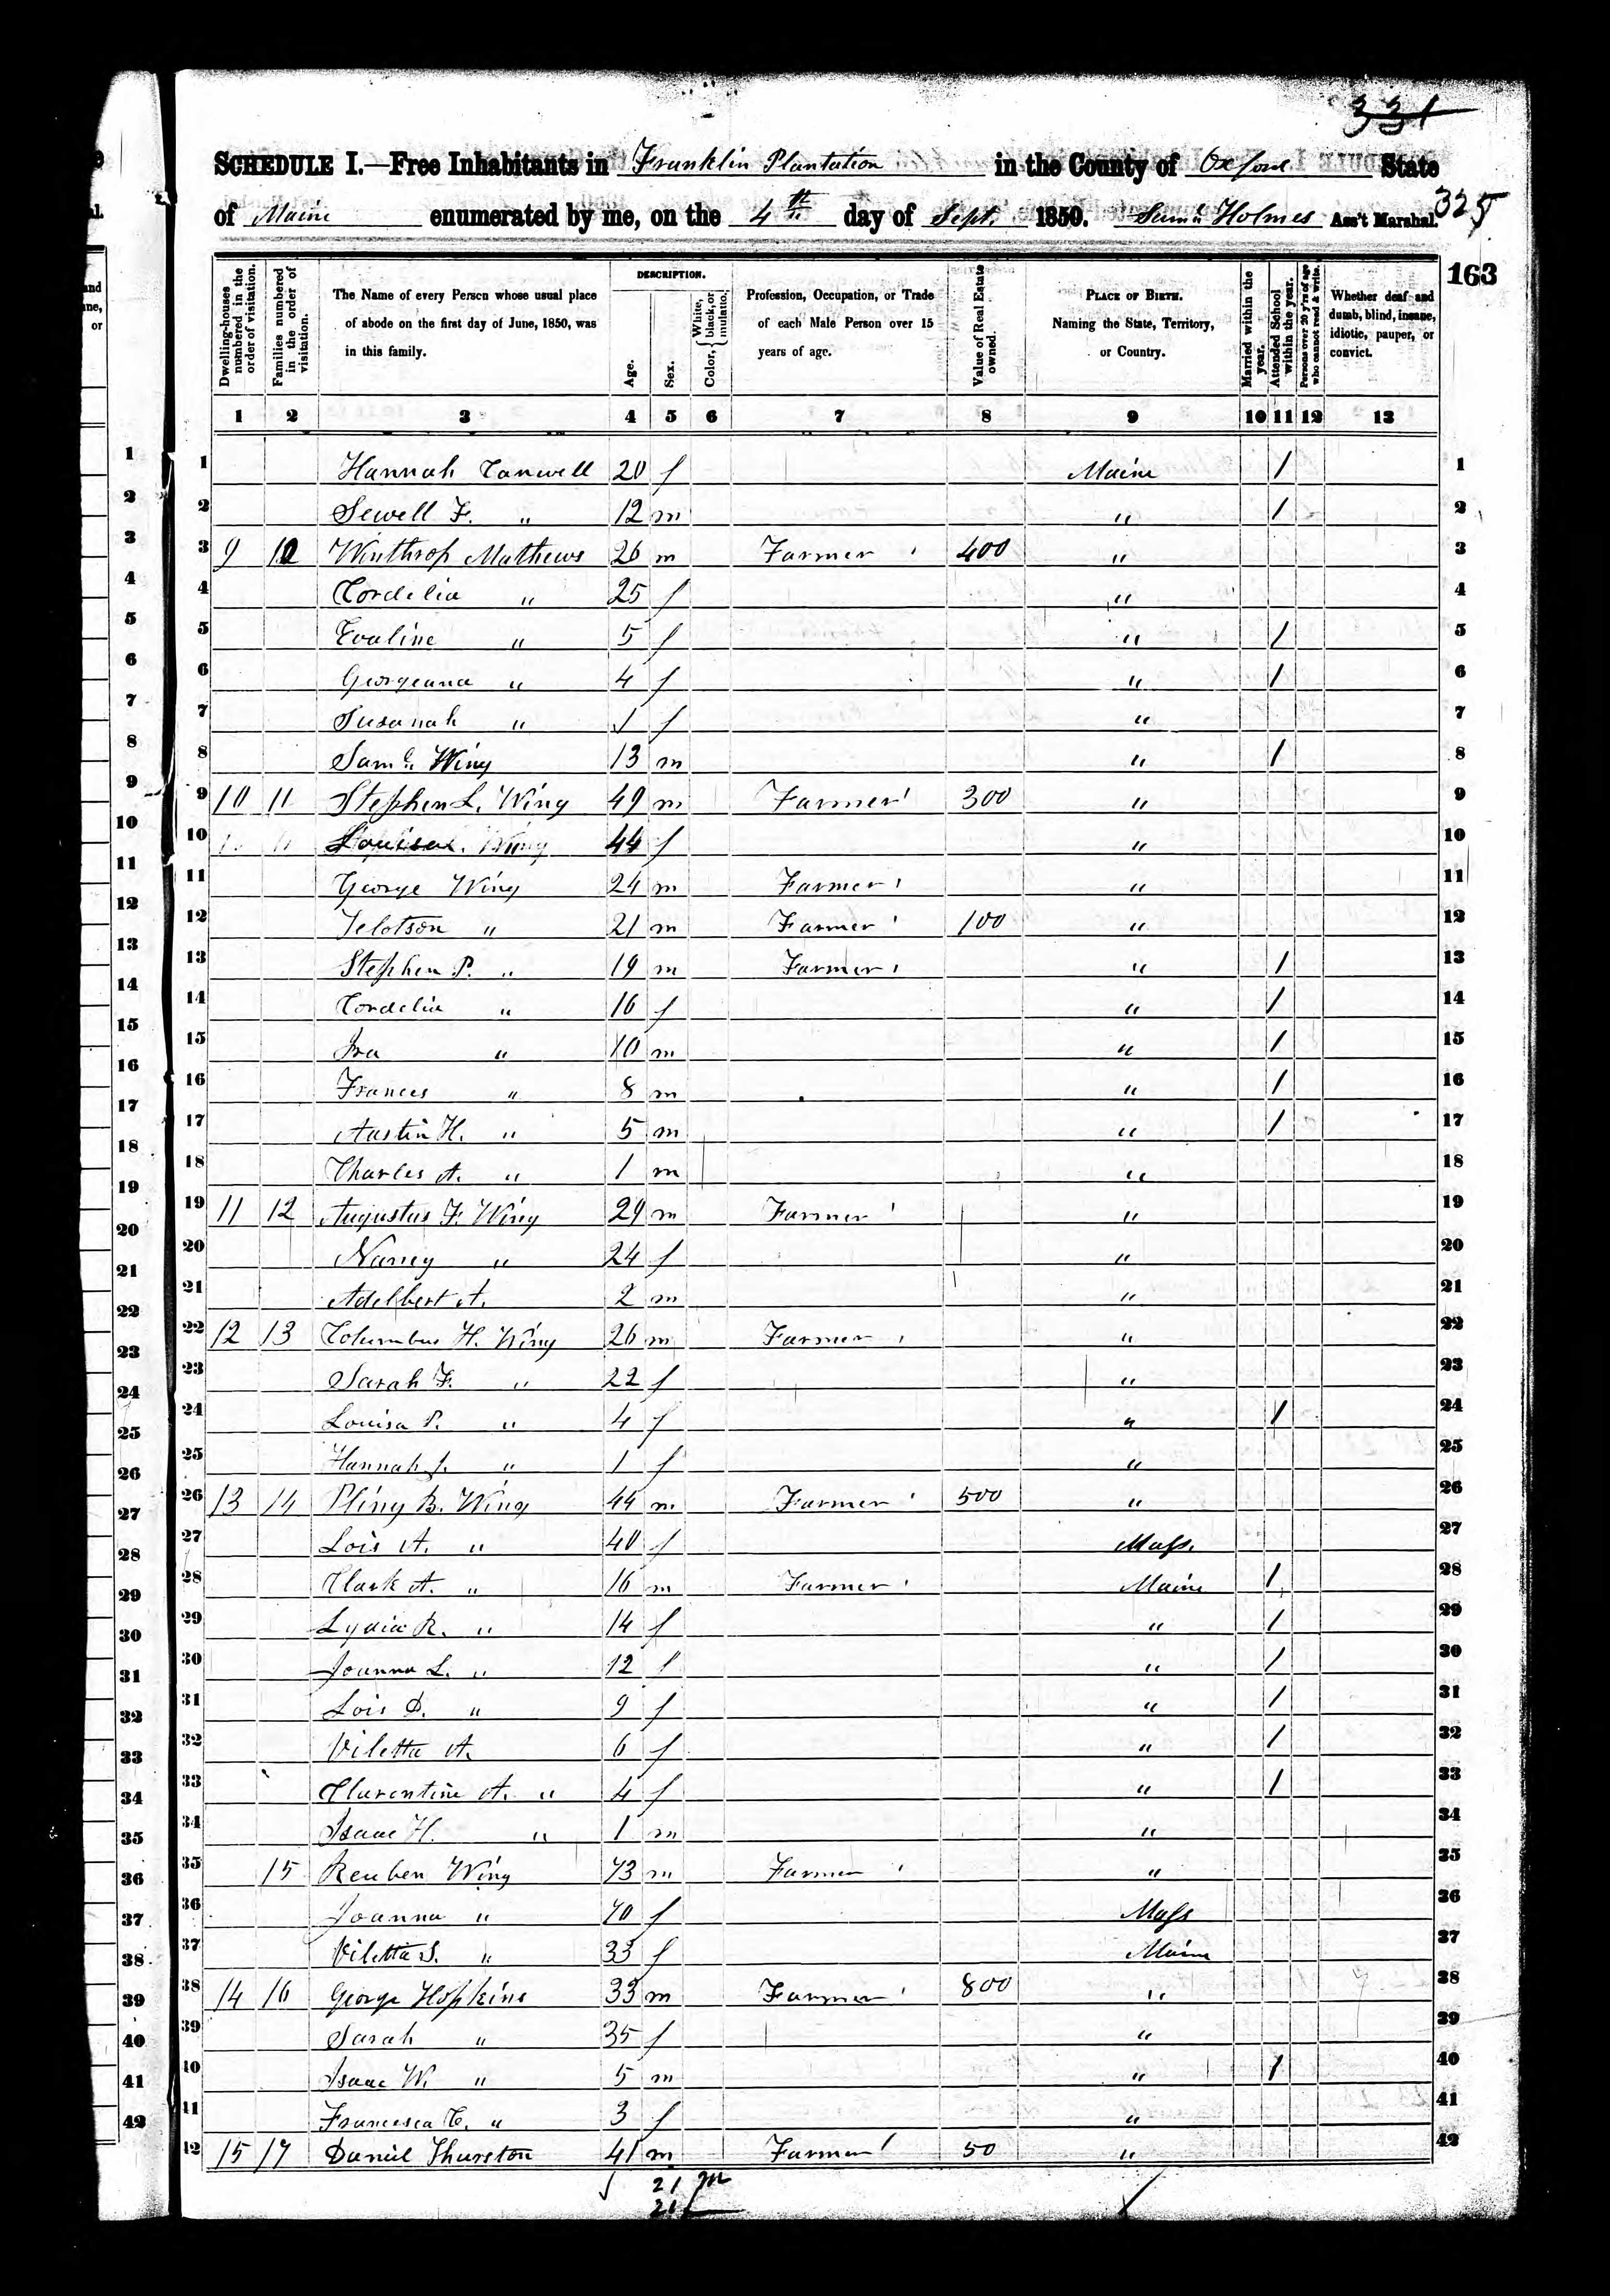 331
SCHEDULE I.—Free Inhabitants in Franklin Plantation in the County of Oxford State
of Maine enumerated by me, on the 4th day of Sept. 1850. Saml. Holmes Ass't Marshal. 325
163
DESCRIPTION.
Dwelling-houses numbered in the order of visitation. Families numbered in the order of visitation. The Name of every Person whose usual place of abode on the first day of June, 1850, was in this family. Age. Sex. Color, { White, black, or mulatto. Profession, Occupation, or Trade of each Male Person over 15 years of age. Value of Real Estate owned. PLACE OF BIRTH. Naming the State, Territory, or Country. Married within the year. Attended School within the year. Persons over 20 y'rs of age who cannot read & write. Whether deaf and dumb, blind, insane, idiotic, pauper, or convict.
1 2 3 4 5 6 7 8 9 10 11 12 13
1 Hannah 20 f Maine / 1
2 Sewell F. " 12 m " / 2
3 9 10 Winthrop Mathews 26 m Farmer 400 " 3
4 Cordelia " 25 f " 4
5 Evaline " 5 f " / 5
6 Georgeanna " 4 f " / 6
7 Susanah " 1 f " 7
8 Saml. Wing 13 m " / 8
9 10 11 Stephen L. Wing 49 m Farmer 300 " 9
10 Louisa Wing 44 f " 10
11 George Wing 24 m Farmer " 11
12 Telotson " 21 m Farmer 100 " 12
13 Stephen P. " 19 m Farmer " / 13
14 Cordelia " 16 f " / 14
15 Ira " 10 m " / 15
16 Frances " 8 m " / 16
17 Austin H. " 5 m " / 17
18 Charles A. " 1 m " 18
19 11 12 Augustus F. Wing 29 m Farmer " 19
20 Nancy " 24 f " 20
21 Adelbert A. 2 m " 21
22 12 13 Columbus H. Wing 26 m Farmer " 22
23 Sarah F. " 22 f " 23
24 Louisa P. " 4 f " / 24
25 Hannah J. " 1 f " 25
26 13 14 Pliny B. Wing 44 m Farmer 500 " 26
27 Lois A. " 40 f Mass. 27
28 Clark A. " 16 m Farmer Maine / 28
29 Lydia R. " 14 f " / 29
30 Joanna L. " 12 f " / 30
31 Lois D. " 9 f " / 31
32 Viletta A. 6 f " / 32
33 Clarentine A. " 4 f " / 33
34 Isaac H. " 1 m " 34
35 15 Reuben Wing 73 m Farmer " 35
36 Joanna " 70 f Mass 36
37 Viletta S. " 33 f Maine 37
38 14 16 George Hopkins 33 m Farmer 800 " 38
39 Sarah " 35 f " 39
40 Isaac W. " 5 m " / 40
41 Francesca C. " 3 f " 41
42 15 17 Daniel Thurston 41 m Farmer 50 " 42
21 m
21 f